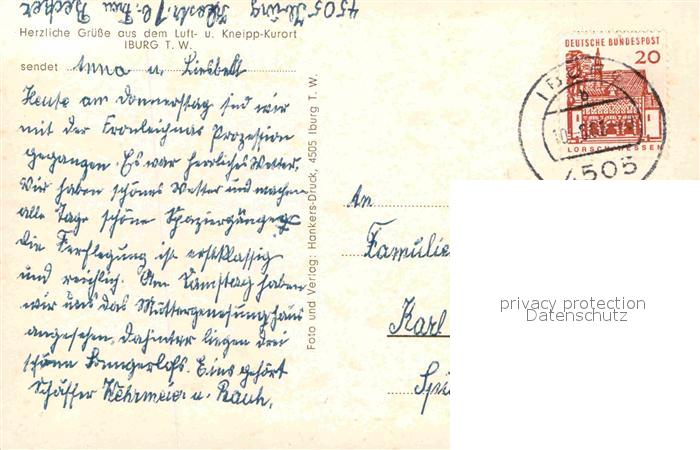 4505 Iburg
bei Frau Becker
Herzliche Grüße aus dem Luft- u. Kneipp-Kurort
IBURG T. W.
sendet Anna u. Liesbelt
Heute am Donnerstag sind wir
mit der Fronleichnas Prozession
gegangen. Es war herrliches Wetter.
Wir haben schönes Wetter und machen
alle Tage schöne Spaziergänge
die Ferflegung ist erstklassig
und reichlich. Am Samstag haben
wir uns das Müttergenesungshaus
angesehen. Dahinter liegen drei
schöne Bungerlohs. Eins gehört
Schäffer Wehrmeier u. Rauh.
Foto und Verlag: Hankers-Druck, 4505 Iburg T. W.
DEUTSCHE BUNDESPOST
20
LORSCH/HESSEN
IBURG
b
4505
An
Familie
Karl
privacy protection
Datenschutz